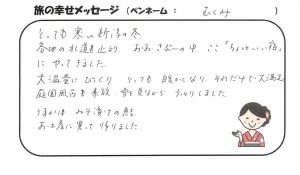 旅の幸せメッセージ (ペンネーム： むくみ )
とっても寒い新潟の冬
各地の水道も止まり、おおさぶーの中、ここ「ちょっといい宿」
にやってきました。
大温量にびっくり とっても暖かくなり、それだけで大満足
庭園風呂も素敵、雪を見ながらうっとりしました。
みそ漬けの鮭
お土産に買って帰りました。